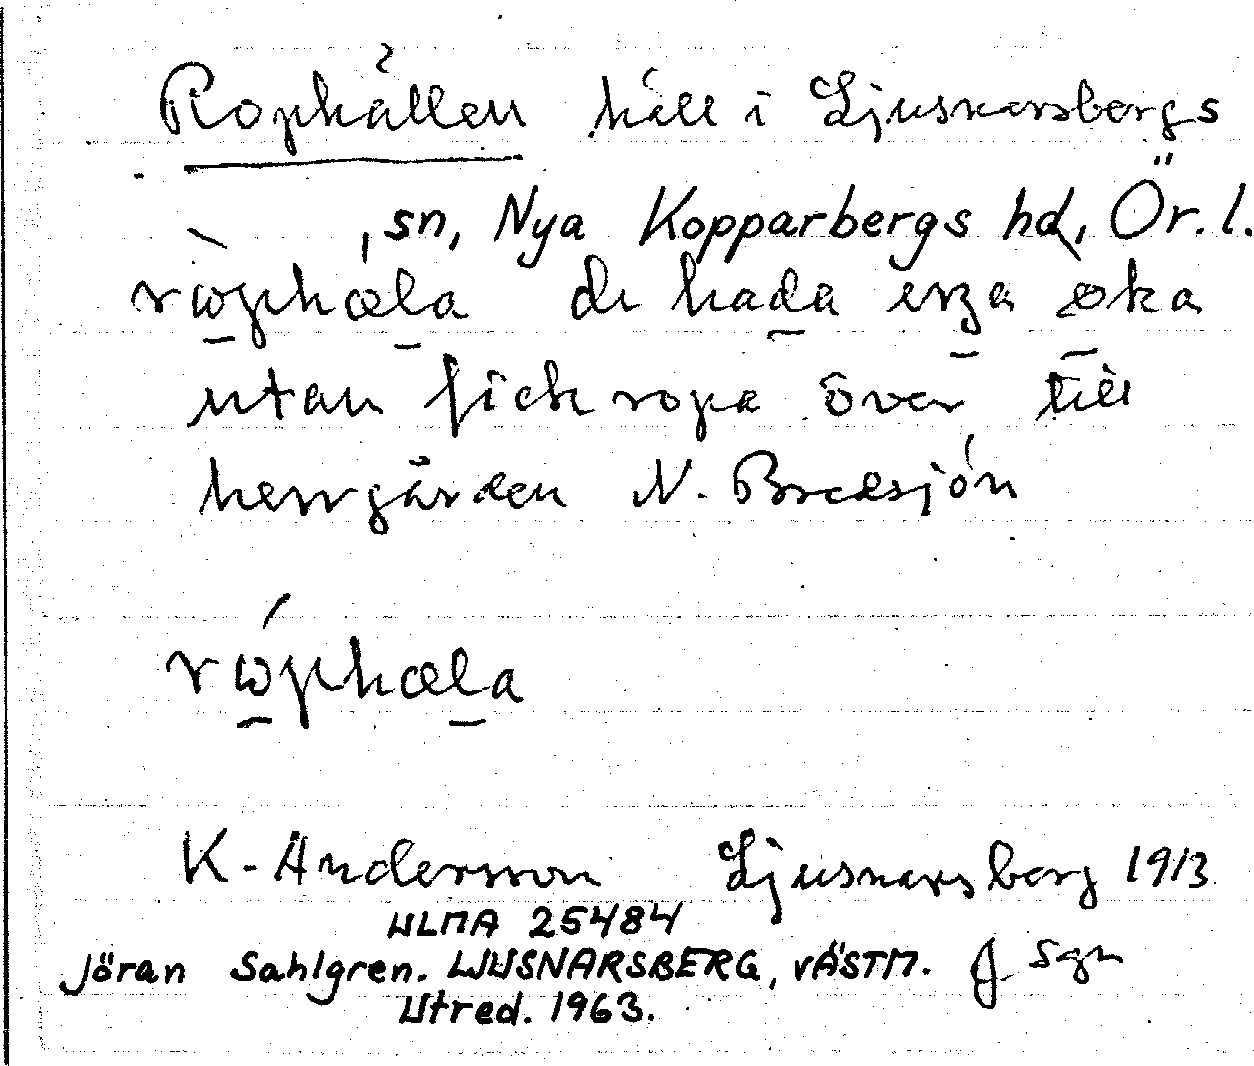 Rophällen häll i Ljusnarsbergs
sn, Nya Kopparbergs hd, Ör. l.
ròphæla di hada eṉga øka
utan fick ropa över till
herrgården N. Bredsjön
róphæla
K-Andersson Ljusnarsberg 1913
ULMA 25484
Jöran Sahlgren. LJUSNARSBERG, VÄSTM. J Sgn
Utred. 1963.